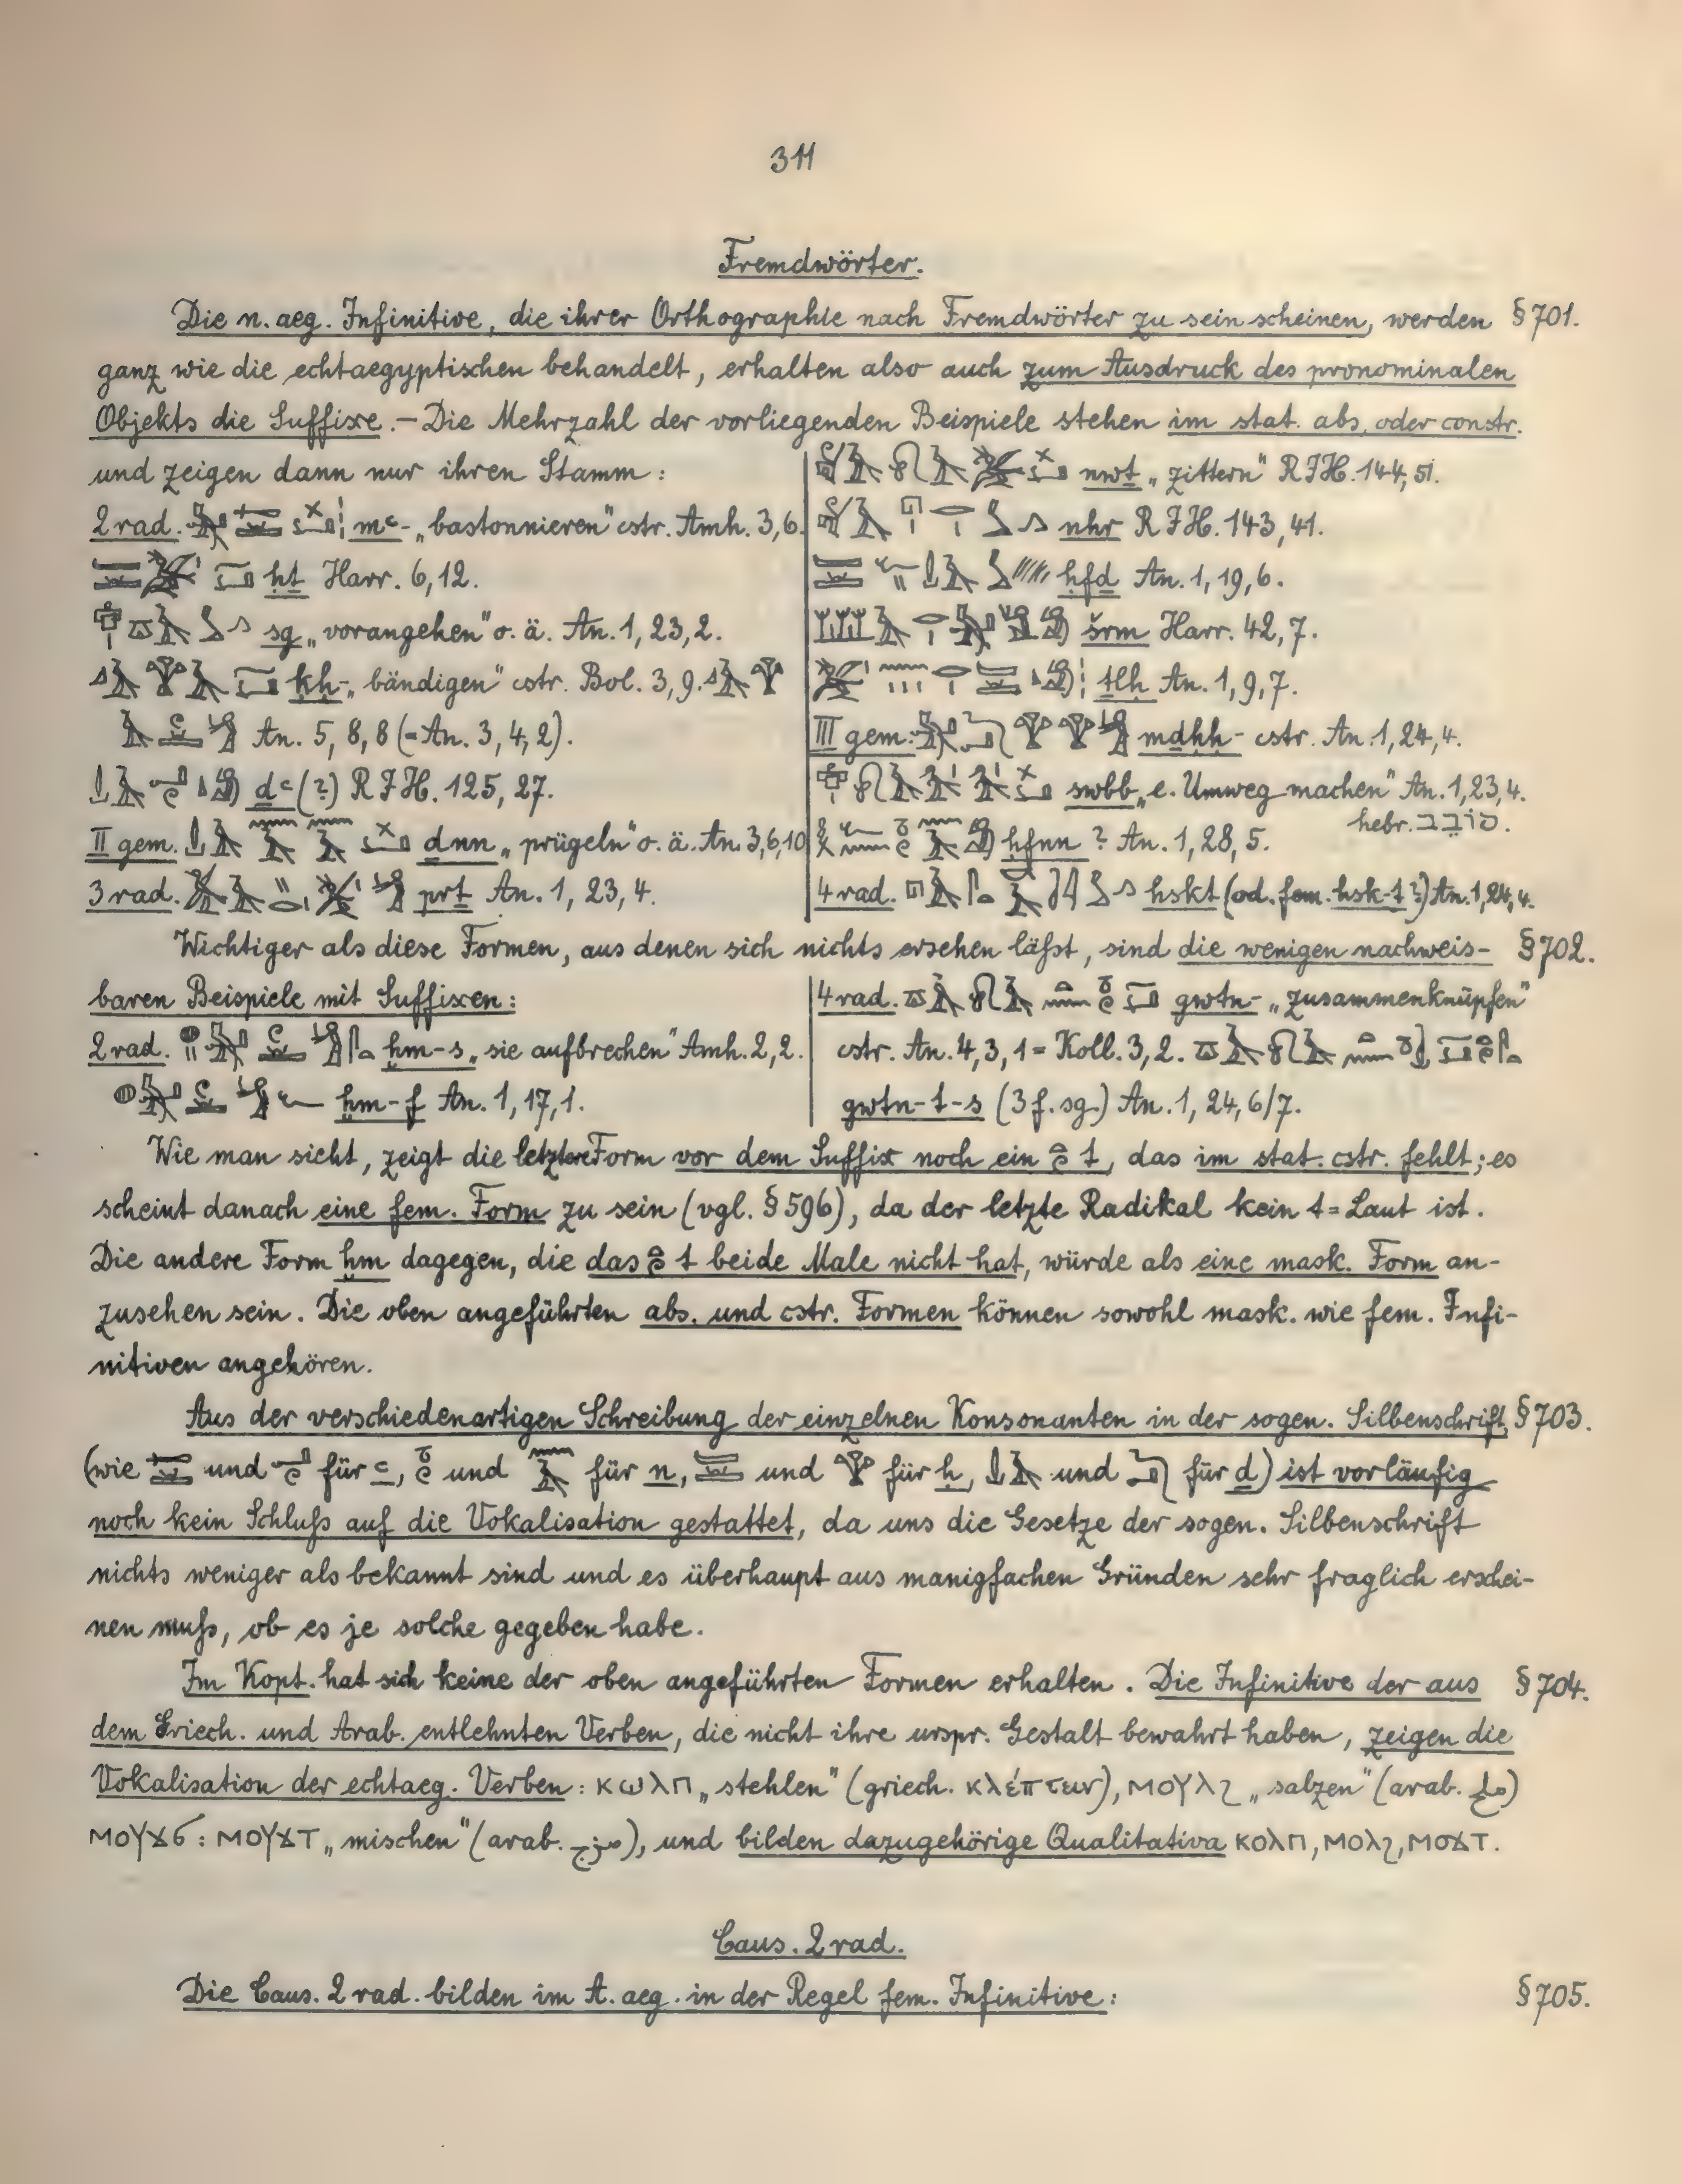 311
Fremdwörter.
Die n. aeg. Infinitive, die ihrer Orthographie nach Fremdwörter zu sein scheinen, werden § 701.
ganz wie die echtaegyptischen behandelt, erhalten also auch zum Ausdruck des pronominalen
Objekts die Suffixe. — Die Mehrzahl der vorliegenden Beispiele stehen im stat. abs. oder constr.
und zeigen dann nur ihren Stamm:
2 rad. mꜥ- „bastonnieren" cstr. Amh. 3,6.
ḥṯ Harr. 6,12.
sg „vorangehen" o. ä. An. 1, 23, 2.
ḳḥ- „bändigen" cstr. Bol. 3, 9.
An. 5, 8, 8 (= An. 3, 4, 2).
ḏꜥ (?) R I H. 125, 27.
II gem. ḏnn „prügeln" o. ä. An. 3,6,10
3 rad. prṯ An. 1, 23, 4.
nwṯ „zittern" R I H. 144, 51.
nhr R I H. 143, 41.
ḥfḏ An. 1, 19, 6.
šrm Harr. 42, 7.
ṯlḥ An. 1, 9, 7.
III gem: mdḥḥ- cstr. An. 1, 24, 4.
swbb „e. Umweg machen" An. 1, 23, 4.
hebr. סובב.
ḥfnn ? An. 1, 28, 5.
4 rad. hskt (od. fem. hsk-t ?) An. 1, 24, 4.
Wichtiger als diese Formen, aus denen sich nichts ersehen läßt, sind die wenigen nachweis- § 702.
baren Beispiele mit Suffixen:
2 rad. ḫm-s „sie aufbrechen" Amh. 2, 2.
ḫm-f An. 1, 17, 1.
4 rad. gwtn- „zusammenknüpfen"
cstr. An. 4, 3, 1 = Koll. 3, 2.
gwtn-t-s (3 f. sg.) An. 1, 24, 6/7.
Wie man sieht, zeigt die letztere Form vor dem Suffix noch ein t, das im stat. cstr. fehlt; es
scheint danach eine fem. Form zu sein (vgl. § 596), da der letzte Radikal kein t=Laut ist.
Die andere Form ḫm dagegen, die das t beide Male nicht hat, würde als eine mask. Form an-
zusehen sein. Die oben angeführten abs. und cstr. Formen können sowohl mask. wie fem. Infi-
nitiven angehören.
Aus der verschiedenartigen Schreibung der einzelnen Konsonanten in der sogen. Silbenschrift § 703.
(wie und für ꜥ, und für n, und für ḥ, und für d) ist vorläufig
noch kein Schluß auf die Vokalisation gestattet, da uns die Gesetze der sogen. Silbenschrift
nichts weniger als bekannt sind und es überhaupt aus manigfachen Gründen sehr fraglich erschei-
nen muß, ob es je solche gegeben habe.
Im Kopt. hat sich keine der oben angeführten Formen erhalten. Die Infinitive der aus § 704.
dem Griech. und Arab. entlehnten Verben, die nicht ihre urspr. Gestalt bewahrt haben, zeigen die
Vokalisation der echtaeg. Verben: ⲕⲱⲗⲡ „stehlen" (griech. κλέπτειν), ⲙⲟⲩⲗϩ „salzen" (arab. ملح)
ⲙⲟⲩϫϭ : ⲙⲟⲩϫⲧ „mischen" (arab. مزج), und bilden dazugehörige Qualitativa ⲕⲟⲗⲡ, ⲙⲟⲗϩ, ⲙⲟϫⲧ.
Caus. 2 rad.
Die Caus. 2 rad. bilden im A. aeg. in der Regel fem. Infinitive: § 705.